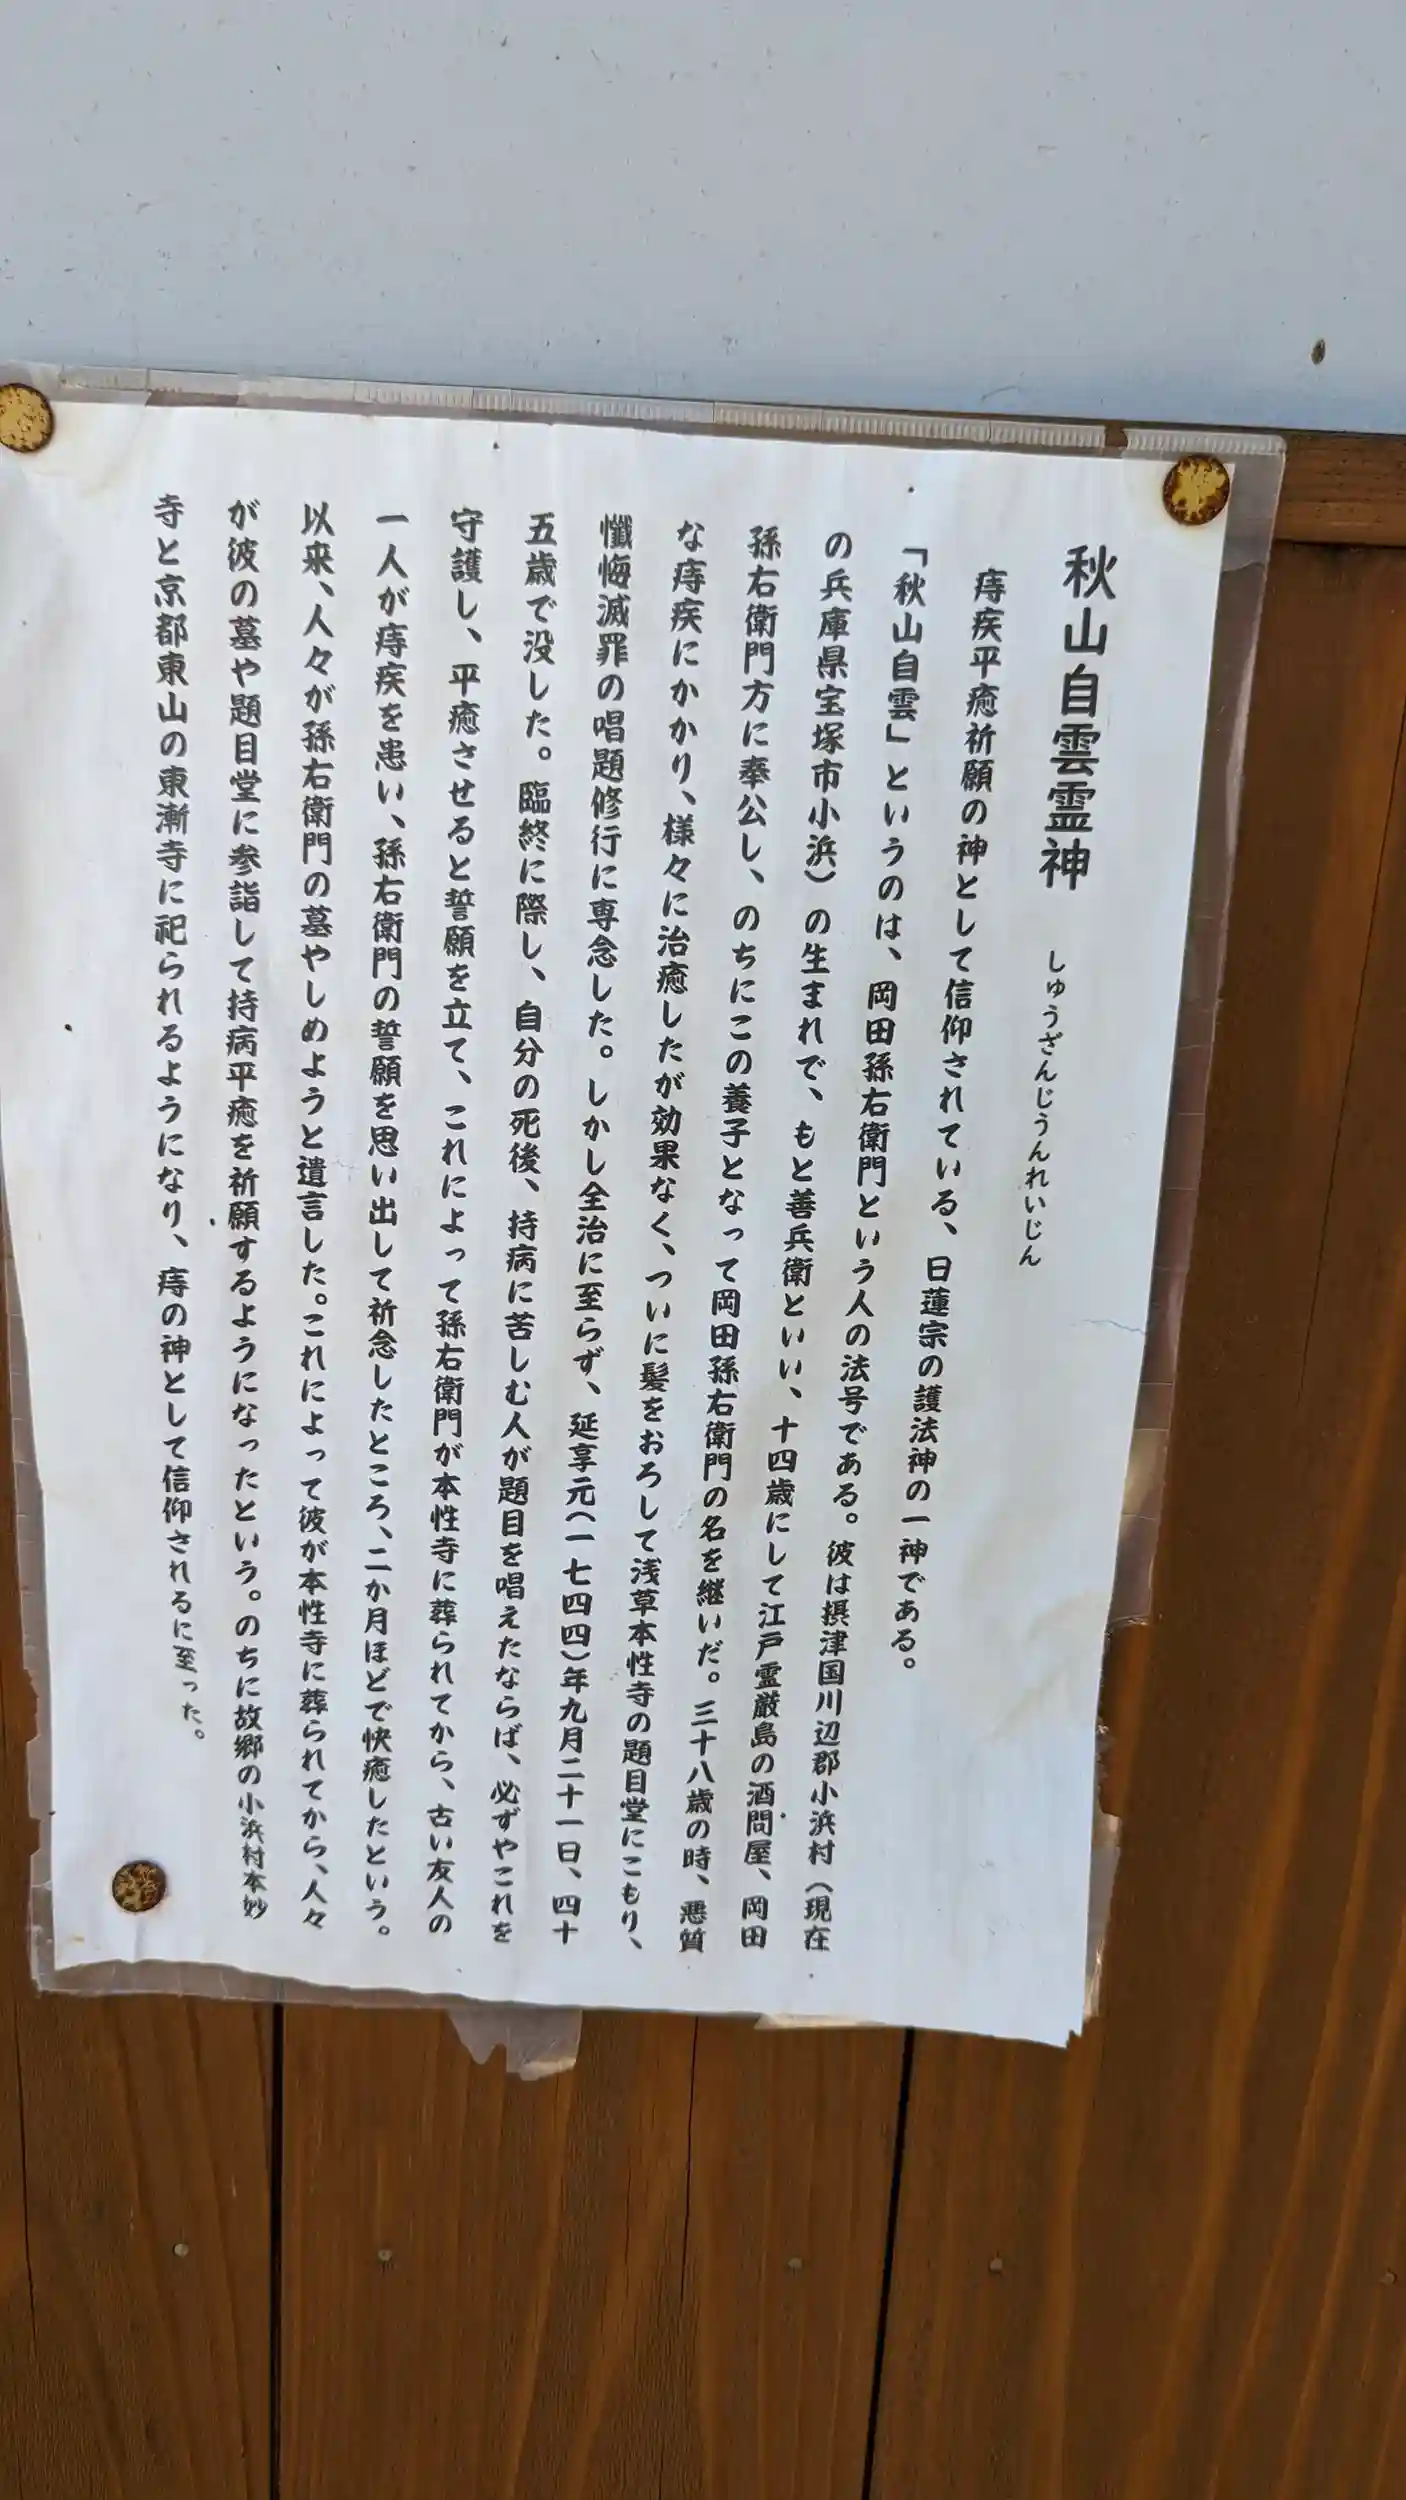 秋山自雲霊神　しゅうざんじうんれいじん
痔疾平癒祈願の神として信仰されている、日蓮宗の護法神の一神である。
「秋山自雲」というのは、岡田孫右衛門という人の法号である。彼は摂津国川辺郡小浜村（現在
の兵庫県宝塚市小浜）の生まれで、もと善兵衛といい、十四歳にして江戸霊厳島の酒問屋、岡田
孫右衛門方に奉公し、のちにこの養子となって岡田孫右衛門の名を継いだ。三十八歳の時、悪質
な痔疾にかかり、様々に治癒したが効果なく、ついに髪をおろして浅草本性寺の題目堂にこもり、
懺悔滅罪の唱題修行に専念した。しかし全治に至らず、延享元（一七四四）年九月二十一日、四十
五歳で没した。臨終に際し、自分の死後、持病に苦しむ人が題目を唱えたならば、必ずやこれを
守護し、平癒させると誓願を立て、これによって孫右衛門が本性寺に葬られてから、古い友人の
一人が痔疾を患い、孫右衛門の誓願を思い出して祈念したところ、二か月ほどで快癒したという。
以来、人々が孫右衛門の墓やしめようと遺言した。これによって彼が本性寺に葬られてから、人々
が彼の墓や題目堂に参詣して持病平癒を祈願するようになったという。のちに故郷の小浜村本妙
寺と京都東山の東漸寺に祀られるようになり、痔の神として信仰されるに至った。